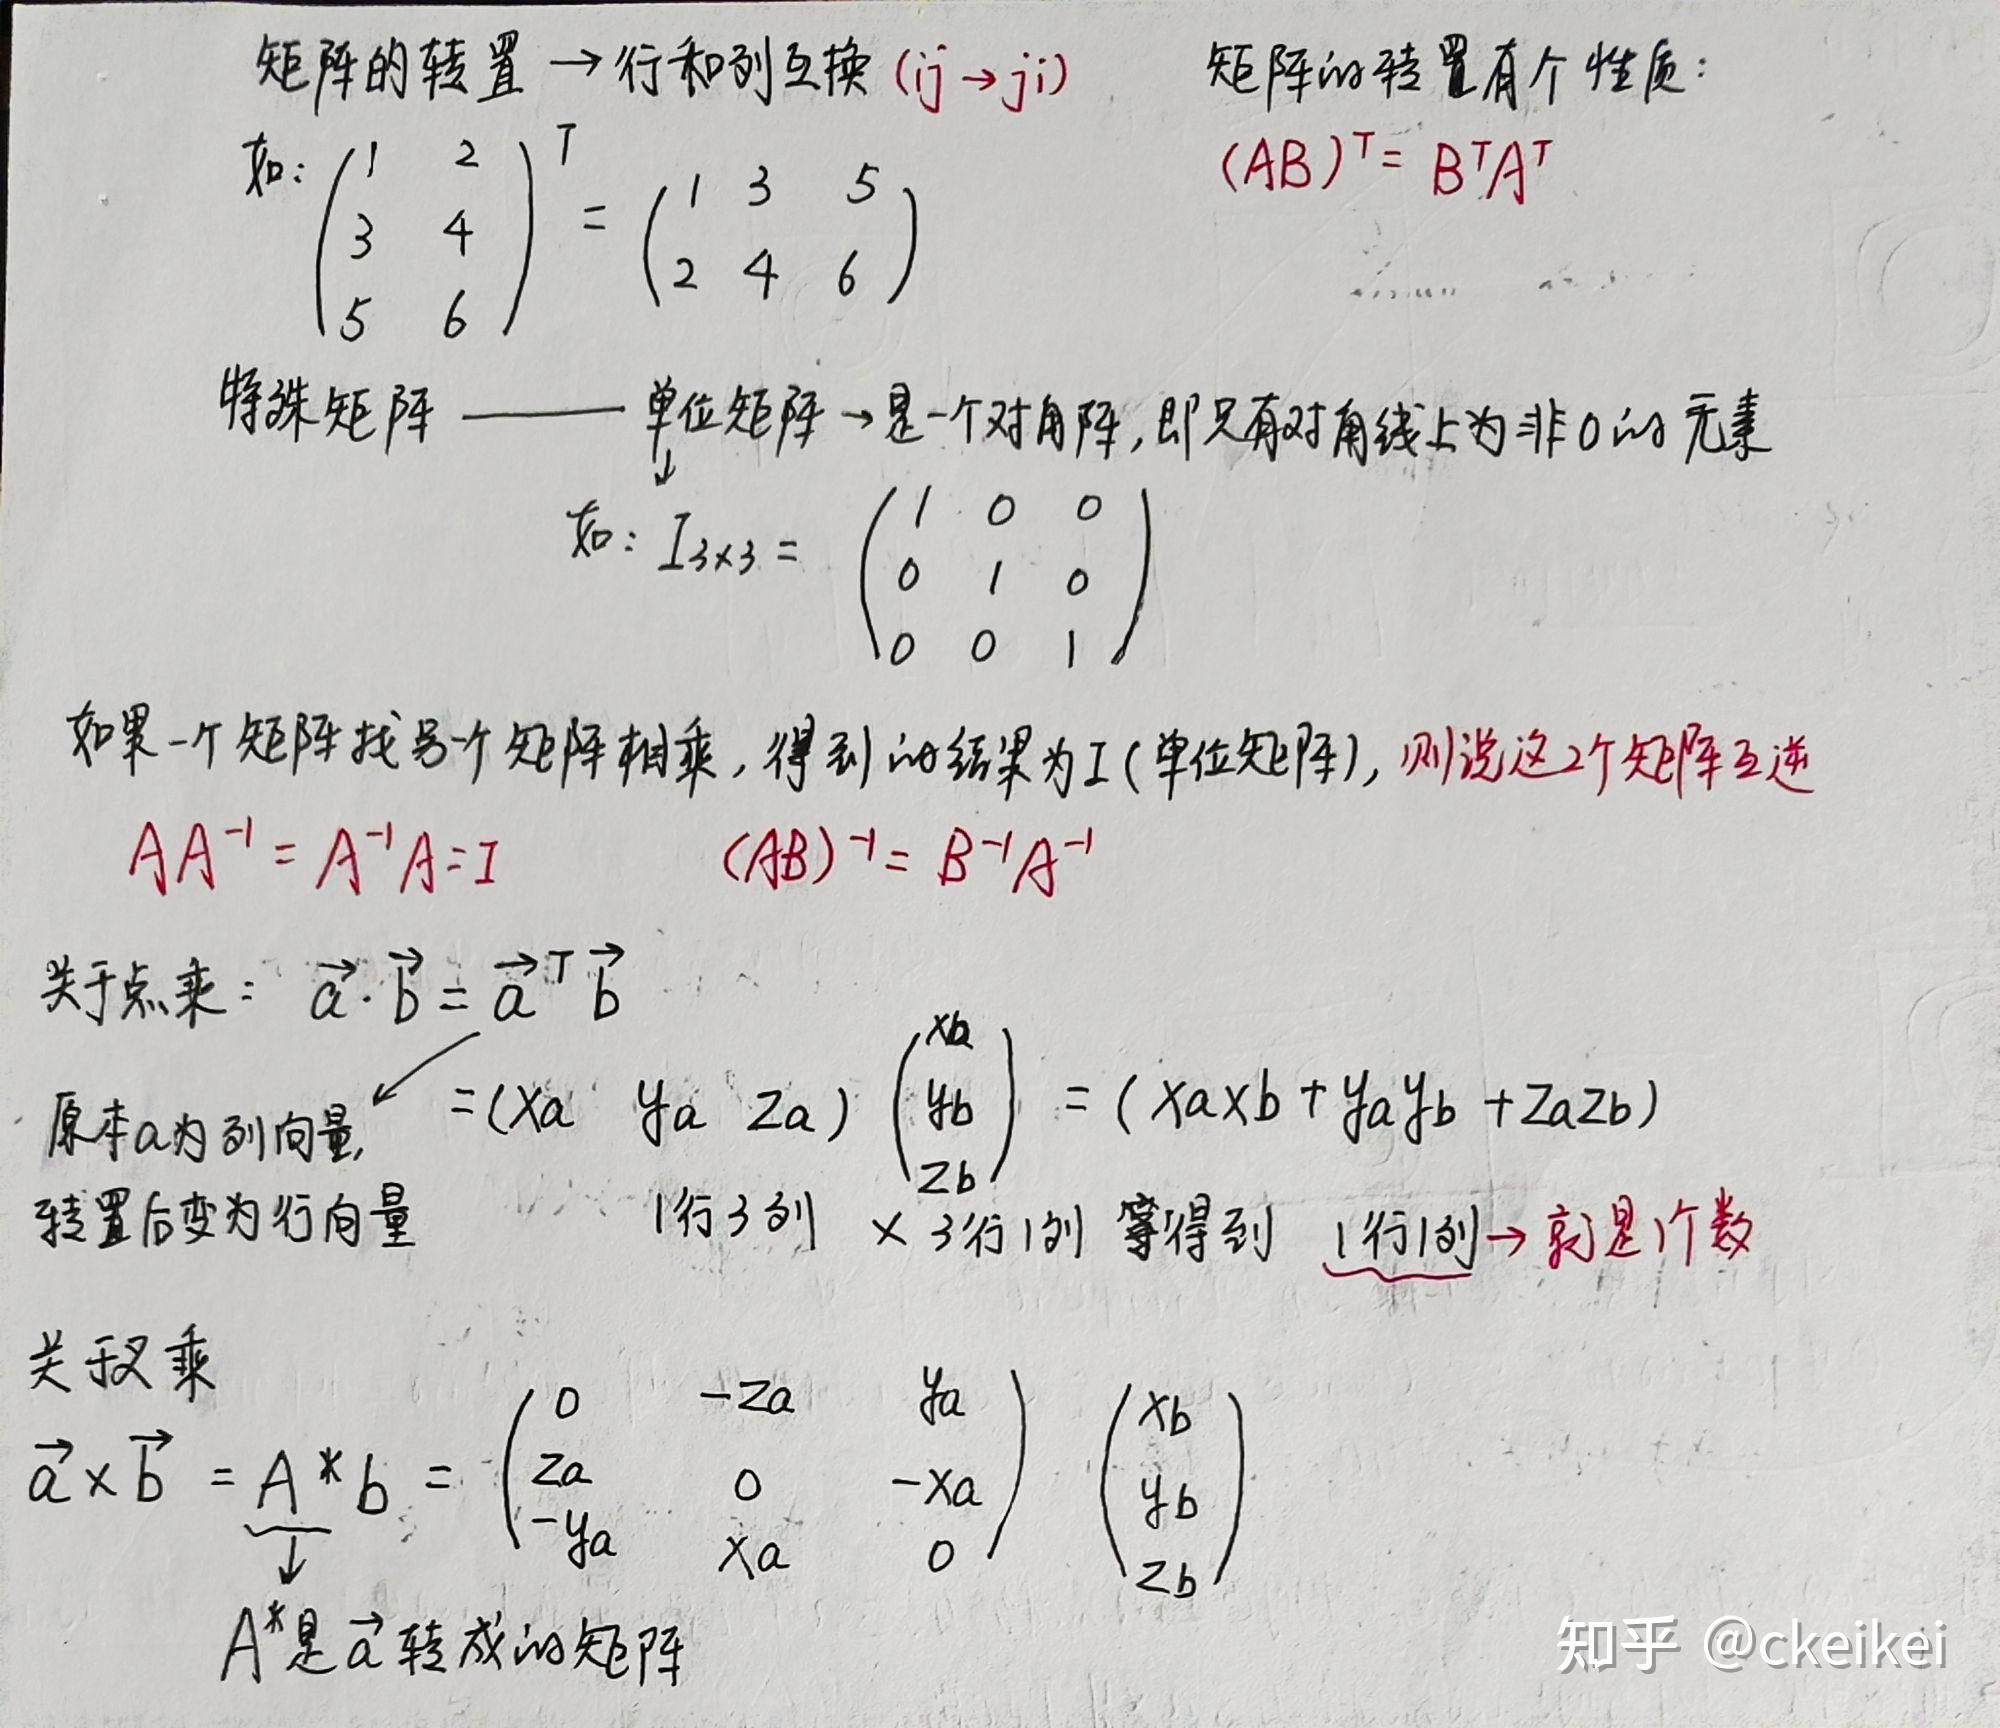 矩阵的转置 → 行和列互换 (ij → ji)
矩阵的转置有个性质：
(AB)ᵀ = BᵀAᵀ
如： ( 1 2 )ᵀ = ( 1 3 5 )
3 4
2 4 6
5 6
特殊矩阵 —— 单位矩阵 → 是一个对角阵，即只有对角线上为非0的元素
↓
如： I₃ₓ₃ = ( 1 0 0 )
0 1 0
0 0 1
如果一个矩阵找另一个矩阵相乘，得到的结果为I(单位矩阵)，则说这2个矩阵互逆
AA⁻¹ = A⁻¹A = I
(AB)⁻¹ = B⁻¹A⁻¹
关于点乘： a⃗·b⃗ = a⃗ᵀb⃗
= (xa ya za) ( xb yb zb ) = (xaxb + yayb + zazb)
原本a为列向量，
转置后变为行向量
1行3列 × 3行1列 等得到 1行1列 → 就是1个数
关于叉乘
a⃗ × b⃗ = A*b = ( 0 -za ya ) ( xb )
za 0 -xa yb
-ya xa 0 zb
↓
A*是a⃗转成的矩阵
知乎 @ckeikei